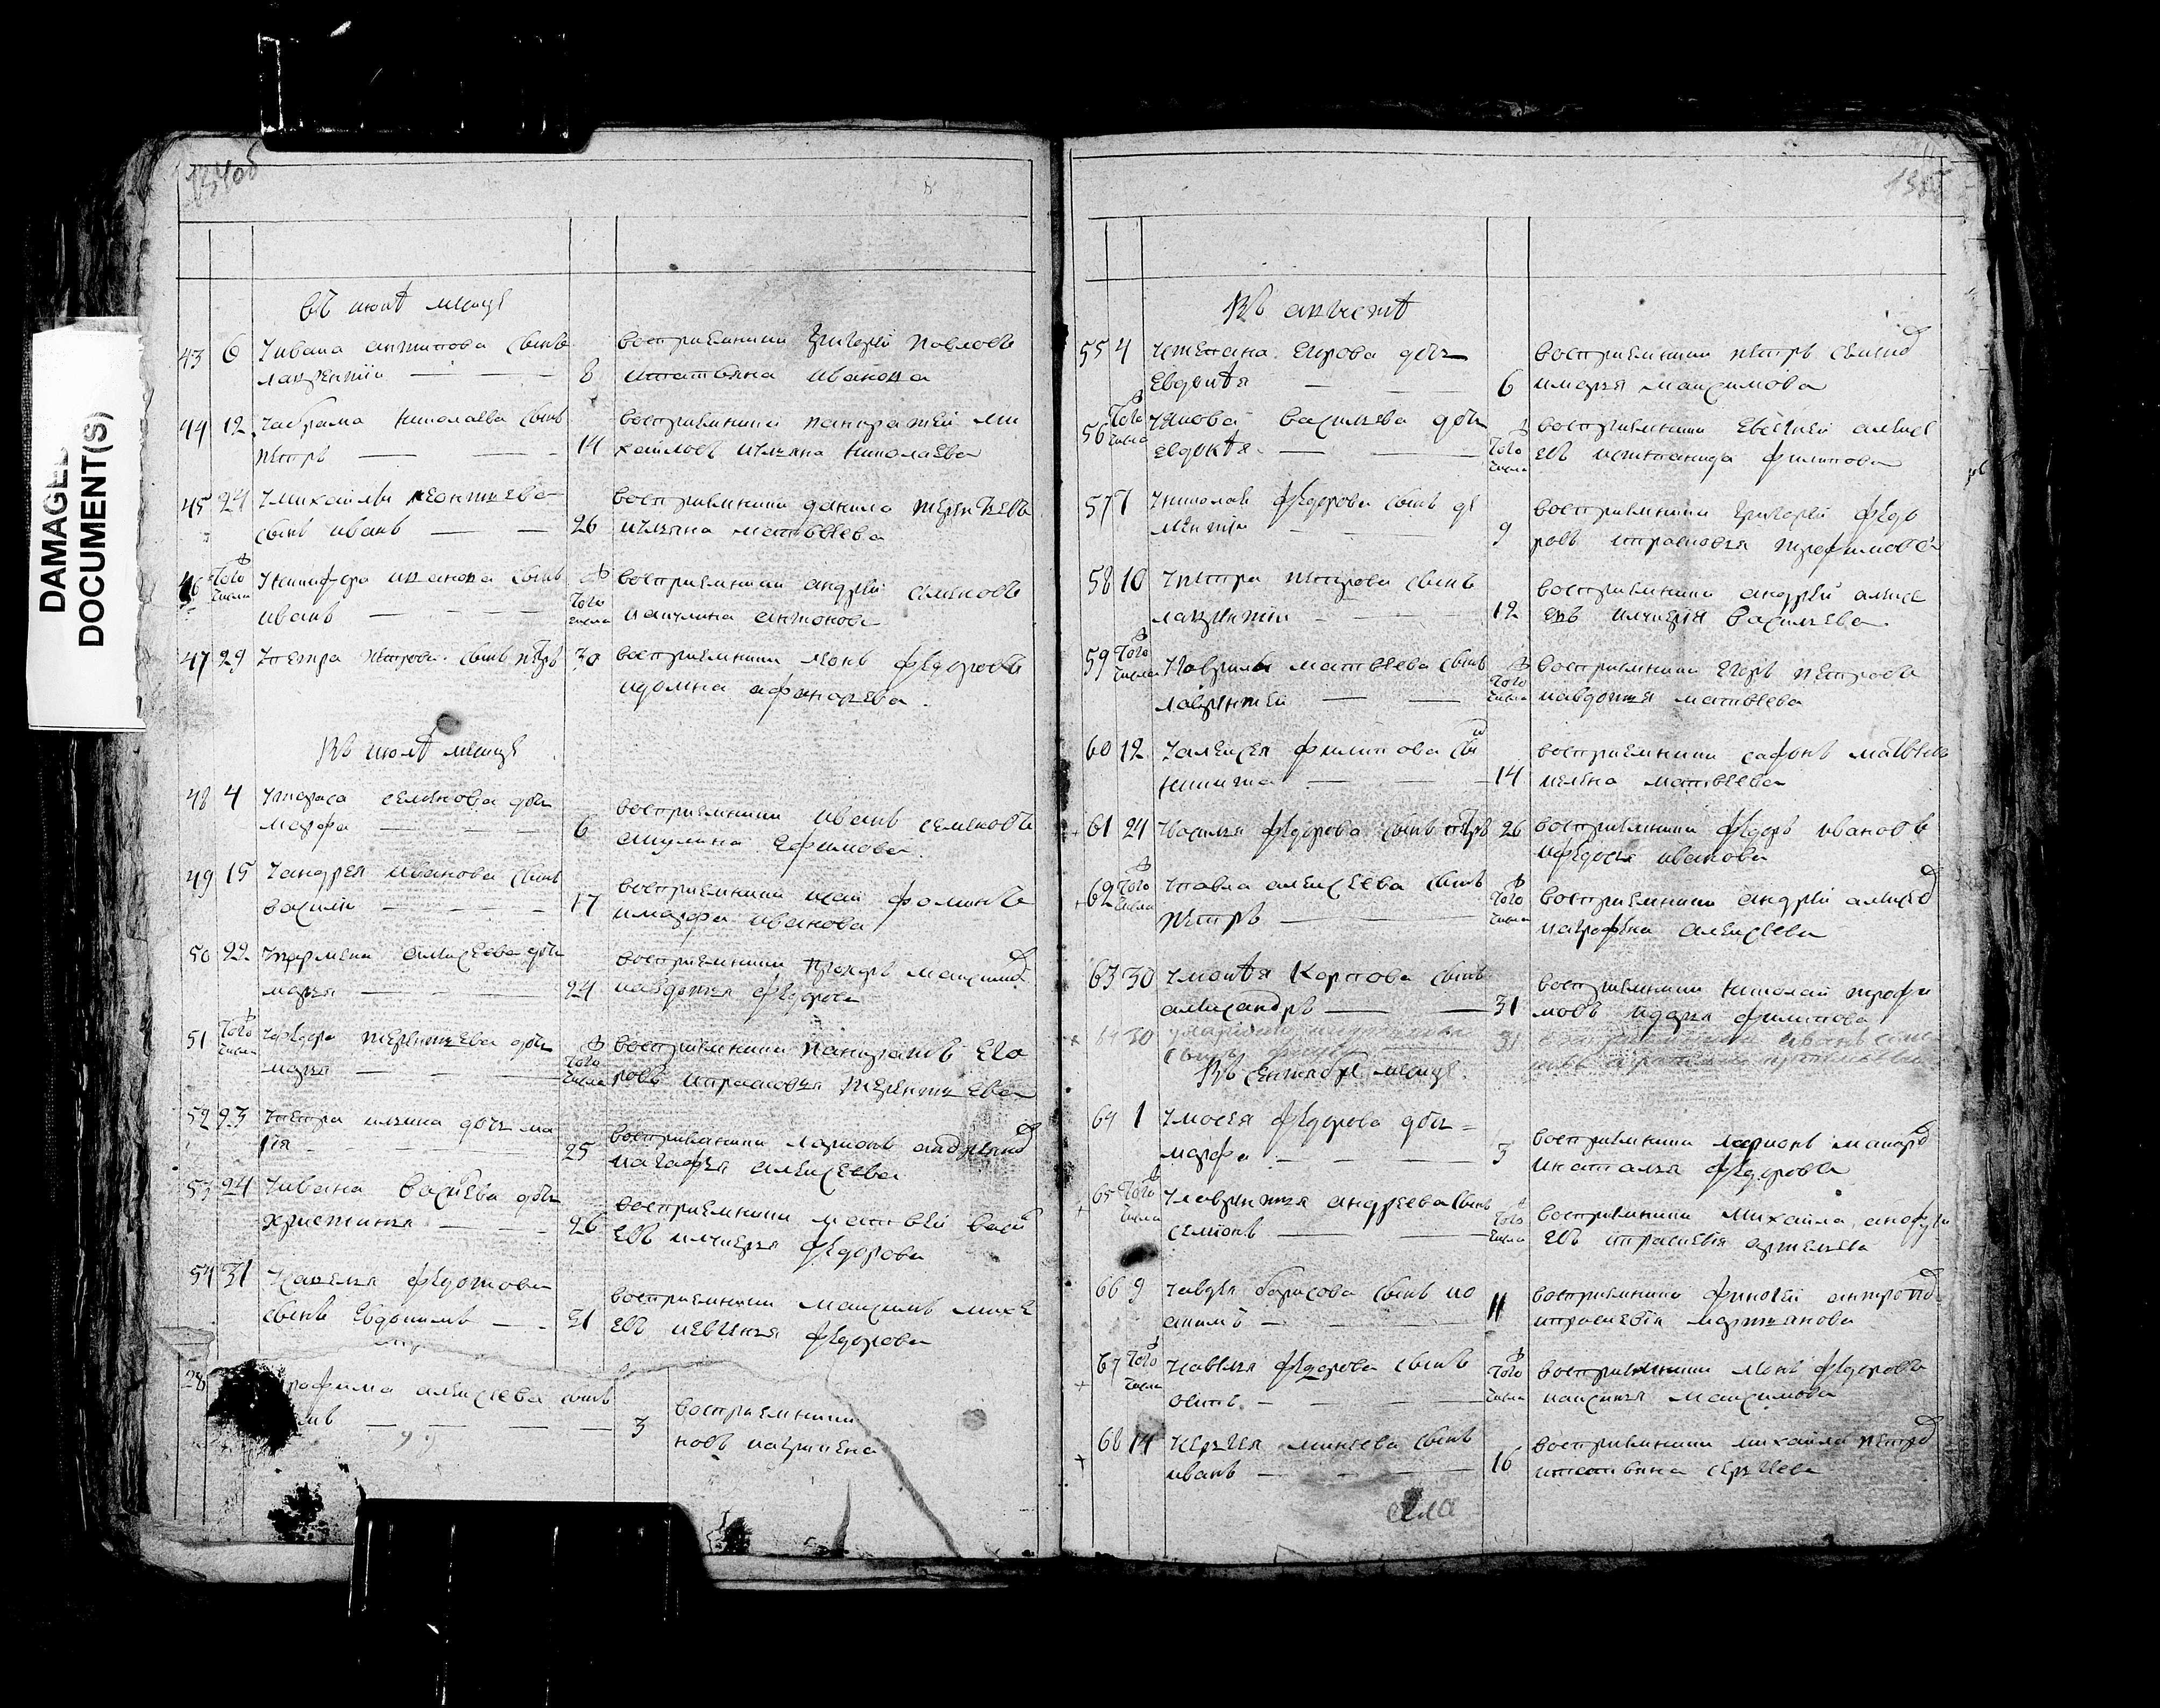 134об
въ июнѣ месяцѣ
43 6 Уивана антипова сынъ
лаврентии 8
восприемники григорей павловъ
итатьяна иванова
44 12 Уабрама николаева сынъ
петръ 14
восприемники панкратей ми
хаиловъ иульяна николаева
45 24 Умихаилы леонтьева
сынъ иванъ 26
восприемники данила
иульяна матвѣева
46 того числа Уникифора иванова сынъ
иванъ того числа
восприемники андрей семеновъ
иакулина антонова
47 29 Упетра петрова сынъ петръ 30
восприемники леонъ федоровъ
идомна афонасева
Въ июлѣ месяцѣ
48 4 Утараса семенова дочь
марфа 6
восприемники иванъ семеновъ
акулина ефимова
49 15 Уандрея иванова сынъ
василеи 17
восприемники исаи фоминъ
имарфа иванова
50 22 алексеева дочь
марья 24
восприемники прохоръ максимов
иавдотья федорова
51 того числа Уфедора терентьева дочь
марья того числа
восприемники панкратъ его
ровъ ипрасковья терентьева
52 23 Упетра ильина дочь ма
рiя 25
восприемники ларионъ андреянов
иагафья алексеева
53 24 Уивана дочь
христинья 26
восприемники матвѣй васил
евъ илукерья федорова
54 31 Усавелья федотова
сынъ евдокимъ 31
восприемники максимъ
евъ иевгенья федорова
28 рофима алексеева сынъ
3
восприемники
новъ иагрипена
135
Въ августѣ
55 4 Устепана егорова дочь
евдокѣя 6
восприемники петръ семенов
имарья максимова
56 того числа Уякова васильева дочь
евдокѣя того числа
восприемники евсигней алексе
евъ истепанида филипова
57 7 Униколаи федорова сынъ де
ментеи 9
восприемники григорей федо
ровъ ипрасковья трофимова
58 10 Упетра петрова сынъ
лаврентии 12
восприемники андрей алексе
евъ илукерiя васильева
59 того числа Угаврилы матвѣева сынъ
лаврентеи того числа
восприемники егоръ петровъ
иавдотья матвѣева
60 12 Уалексея филипова сын
никита 14
восприемники сафонъ матвѣевъ
иелена матвѣева
61 24 Увасилья федорова сынъ петръ 26
восприемники федоръ ивановъ
ифедосья иванова
62 того числа Упавла алексеева сынъ
петръ того числа
восприемники андрей алексеев
иаграфена алексеева
63 30 Умокѣя карпова сынъ
александръ 31
восприемники николай трофи
мовъ идарья филипова
64 30
сынъ 31
восприемники иванъ
Въ сентябрѣ месяцѣ
64 1 Умосея федорова дочь
марфа 3
восприемники ларионъ макаров
инаталья федорова
65 того числа Улаврентья андреева сынъ
семионъ того числа
восприемники михаила
евъ ипраскевiя артемьева
66 9 борисова сынъ ио
акимъ 11
восприемники финогей антропов
ипраскевiя мартьянова
67 того числа Усавелья федорова сынъ
того числа
восприемники леонъ федоровъ
иаксинья максимова
68 14 Усергея минеева сынъ
иванъ 16
восприемники михаила петров
итатьяна сергеева
села
DAMAGED
DOCUMENT(S)